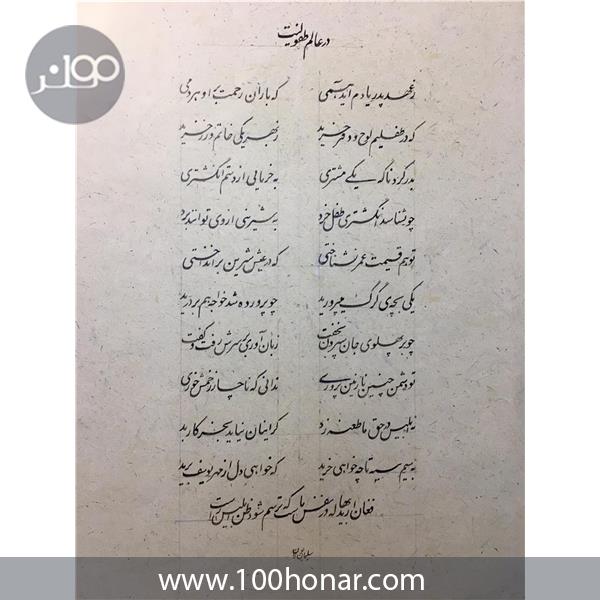 مو هنر
در عالم طفولیت
ز عهد پدر یادم آید همی که باران رحمت بر او هر دمی
که در طفلیم لوح و دفتر خرید ز بهر یکی خاتم و زر خرید
بدر کرد ناگه یکی مشتری به خرمایی از دستم انگشتری
چو نشناسد انگشتری طفل خرد به شیرینی از وی توانند برد
تو هم قیمت عمر نشناختی که در عیش شیرین برانداختی
یکی بچه‌ی گرگ می‌پرورید چو پرورده شد خواجه هم بردرید
چو بر پهلوی جان سپردن بخفت زبان آوری بر سرش رفت و گفت
تو دشمن چنین نازنین پروری ندانی که ناچار زخمش خوری
نه ابلیس در حق ما طعنه زد کز اینان نیاید بجز کار بد
به سیم سیه تا چه خواهی خرید که خواهی دل از مهر یوسف برید
فغان از بدیها که در نفس ماست که ترسم شود ظن ابلیس راست
www.100honar.com